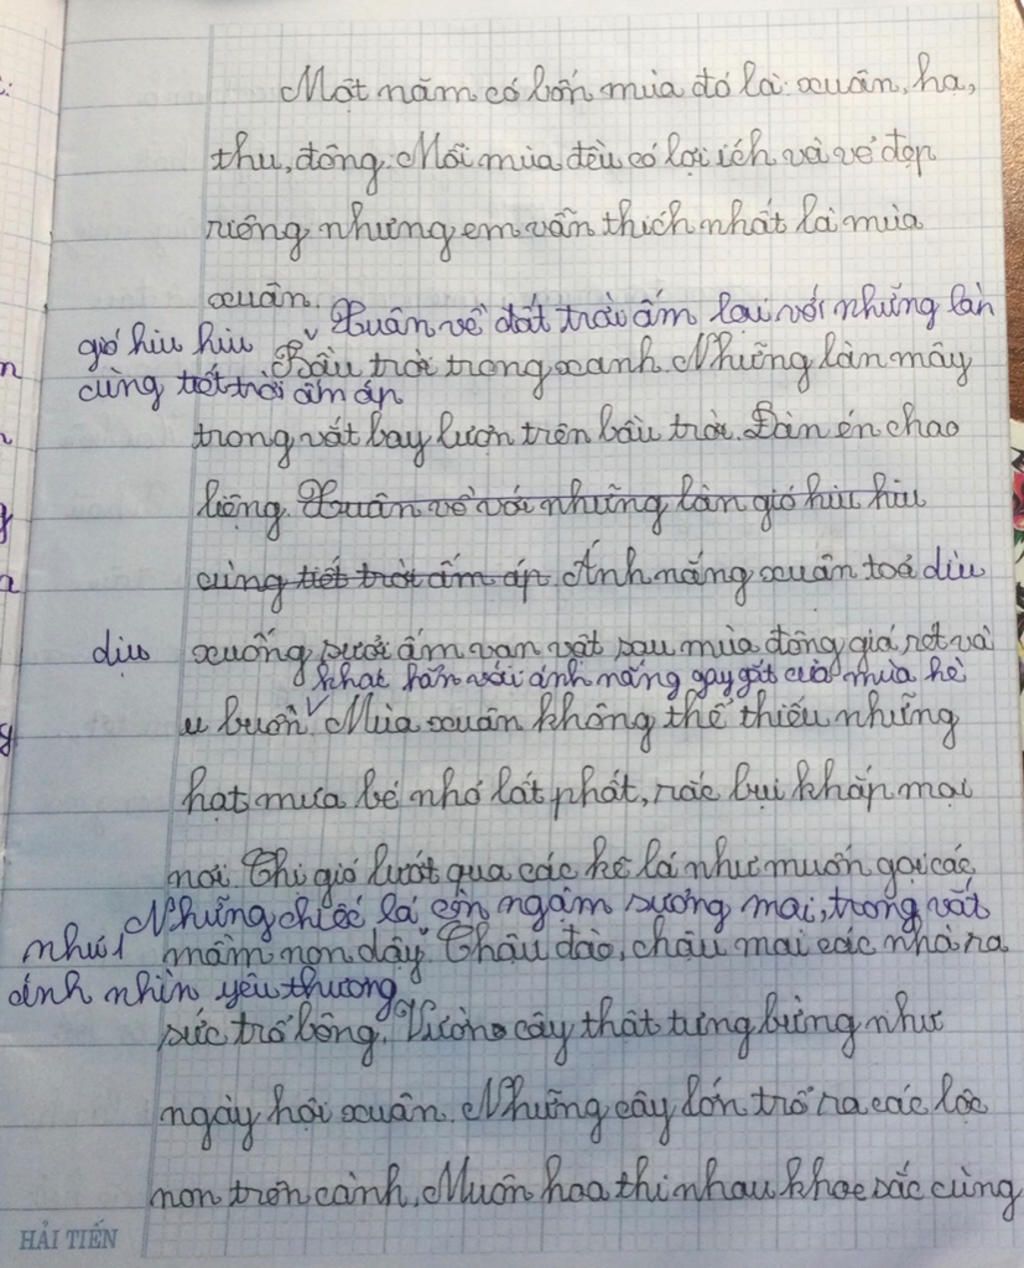 Một năm có bốn mùa đó là: xuân, hạ,
thu, đông. Mỗi mùa đều có lợi ích và vẻ đẹp
riêng nhưng em vẫn thích nhất là mùa
xuân. Xuân về đất trời ấm lại với những làn
gió hiu hiu
cùng tiết trời ấm áp
Bầu trời trong xanh. Những làn mây
trong vắt bay lượn trên bầu trời. Đàn én chao
liệng. Xuân về với những làn gió hiu hiu
cùng tiết trời ấm áp. Ánh nắng xuân toả dịu
dịu xuống sưởi ấm vạn vật sau mùa đông giá rét và
khác hẳn với ánh nắng gay gắt của mùa hè
u buồn. Mùa xuân không thể thiếu những
hạt mưa bé nhỏ lất phất, rắc bụi khắp mọi
nơi. Chị gió lướt qua các kẽ lá như muốn gọi các
Những chiếc lá còn ngậm sương mai, trong vắt
như 1
mầm non dậy. Chậu đào, chậu mai các nhà ra
ánh nhìn yêu thương
sức trổ bông. Vườn cây thật tưng bừng như
ngày hội xuân. Những cây lớn trổ ra các lộc
non trên cành. Muôn hoa thi nhau khoe sắc cùng
HẢI TIẾN